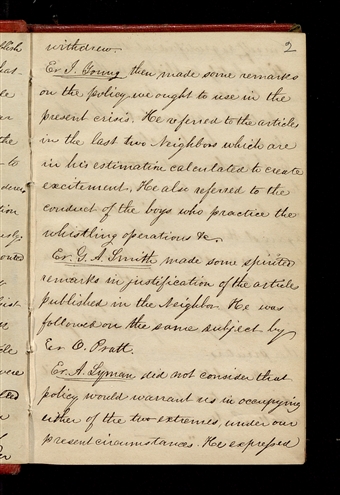 2
withdrew.
Er J. Young then made some remarks
on the policy we ought to use in the
present crisis. He referred to the article
in the last two Neighbors which are
in his estimation calculated to create
excitement. He also referred to the
conduct of the boys who practice the
whistling operations &c.
Er. G. A. Smith made some spirited
remarks in justification of the article
published in the Neighbor. He was
followed on the same subject by
Er O. Pratt.
Er. A. Lyman did not consider that
policy would warrant us in occupying
either of the two extremes, under our
present circumstances. He expressed